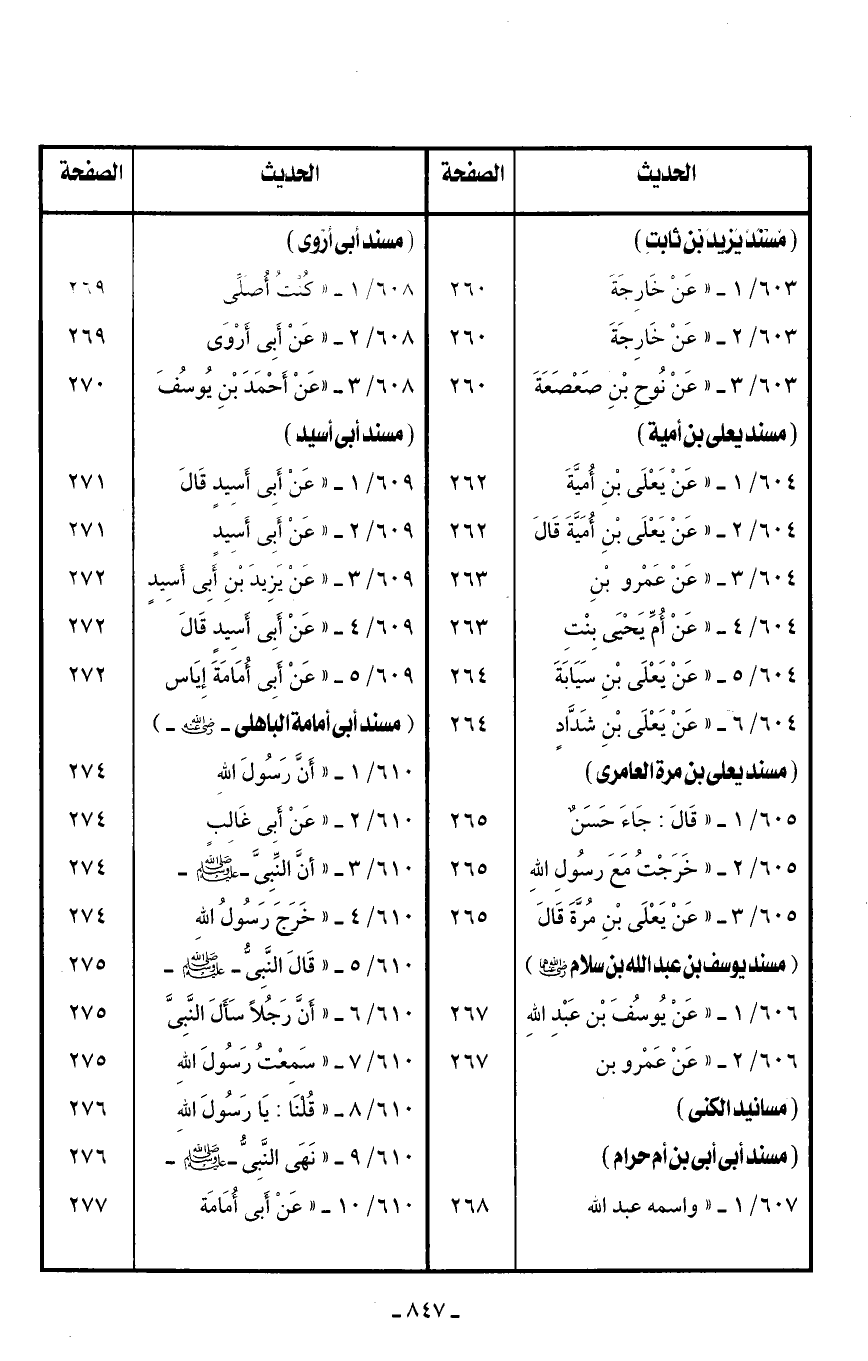 الحديث الصفحة
( مُسْنَدُ يَزِيدَ بْنِ ثَابِتٍ )
٦٠٣/ ١ ـ « عَنْ خَارِجَةَ ٢٦٠
٦٠٣/ ٢ ـ « عَنْ خَارِجَةَ ٢٦٠
٦٠٣/ ٣ ـ « عَنْ نُوحِ بْنِ صَعْصَعَةَ ٢٦٠
( مسند يعلى بن أمية )
٦٠٤/ ١ ـ « عَنْ يَعْلَى بْنِ أُمَيَّةَ ٢٦٢
٦٠٤/ ٢ ـ « عَنْ يَعْلَى بْنِ أُمَيَّةَ قَالَ ٢٦٢
٦٠٤/ ٣ ـ « عَنْ عَمْرِو بْنِ ٢٦٣
٦٠٤/ ٤ ـ « عَنْ أُمِّ يَحْيَى بِنْتِ ٢٦٣
٦٠٤/ ٥ ـ « عَنْ يَعْلَى بْنِ سَيَابَةَ ٢٦٤
٦٠٤/ ٦ ـ « عَنْ يَعْلَى بْنِ شَدَّادٍ ٢٦٤
( مسند يعلى بن مرة العامرى )
٦٠٥/ ١ ـ « قَالَ : جَاءَ حَسَنٌ ٢٦٥
٦٠٥/ ٢ ـ « خَرَجْتُ مَعَ رَسُولِ اللهِ ٢٦٥
٦٠٥/ ٣ ـ « عَنْ يَعْلَى بْنِ مُرَّةَ قَالَ ٢٦٥
( مسند يوسف بن عبد الله بن سلام رضي الله عنهما )
٦٠٦/ ١ ـ « عَنْ يُوسُفَ بْنِ عَبْدِ اللهِ ٢٦٧
٦٠٦/ ٢ ـ « عَنْ عَمْرِو بن ٢٦٧
( مسانيد الكنى )
( مسند أبى أبى بن أم حرام )
٦٠٧/ ١ ـ « واسمه عبد الله ٢٦٨
الحديث الصفحة
( مسند أبى أرْوى )
٦٠٨/ ١ ـ « كُنْتُ أُصَلِّى ٢٦٩
٦٠٨/ ٢ ـ « عَنْ أَبِى أَرْوَى ٢٦٩
٦٠٨/ ٣ ـ «عَنْ أَحْمَدَ بْنِ يُوسُفَ ٢٧٠
( مسند أبى أسيد )
٦٠٩/ ١ ـ « عَنْ أَبِى أَسِيدٍ قَالَ ٢٧١
٦٠٩/ ٢ ـ « عَنْ أَبِى أَسِيدٍ ٢٧١
٦٠٩/ ٣ ـ « عَنْ يَزِيدَ بْنِ أَبِى أَسِيدٍ ٢٧٢
٦٠٩/ ٤ ـ « عَنْ أَبِى أَسِيدٍ قَالَ ٢٧٢
٦٠٩/ ٥ ـ « عَنْ أَبِى أُمَامَةَ إِيَاسِ ٢٧٢
( مسند أبى أمامة الباهلى ـ رضي الله عنه ـ )
٦١٠/ ١ ـ « أَنَّ رَسُولَ اللهِ ٢٧٤
٦١٠/ ٢ ـ « عَنْ أَبِى غَالِبٍ ٢٧٤
٦١٠/ ٣ ـ « أَنَّ النَّبِىَّ ـ ﷺ ـ ٢٧٤
٦١٠/ ٤ ـ « خَرَجَ رَسُولُ اللهِ ٢٧٤
٦١٠/ ٥ ـ « قَالَ النَّبِىُّ ـ ﷺ ـ ٢٧٥
٦١٠/ ٦ ـ « أَنَّ رَجُلاً سَأَلَ النَّبِىَّ ٢٧٥
٦١٠/ ٧ ـ « سَمِعْتُ رَسُولَ اللهِ ٢٧٥
٦١٠/ ٨ ـ « قُلْنَا : يَا رَسُولَ اللهِ ٢٧٦
٦١٠/ ٩ ـ « نَهَى النَّبِىُّ ـ ﷺ ـ ٢٧٦
٦١٠/ ١٠ ـ « عَنْ أَبِى أُمَامَةَ ٢٧٧
ـ ٨٤٧ ـ